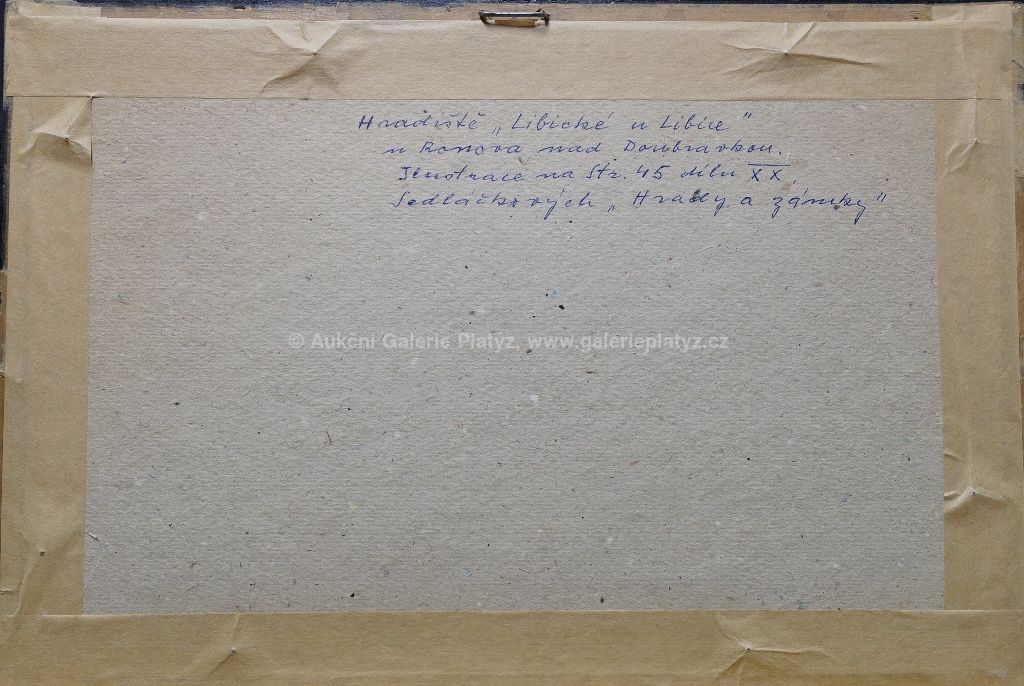 Hradiště „Libické u Libice"
u Ronova nad Doubravkou.
Ilustrace na str. 45 dílu XX,
Sedláčkových „Hrady a zámky"
© Aukční Galerie Platýz, www.galerieplatyz.cz